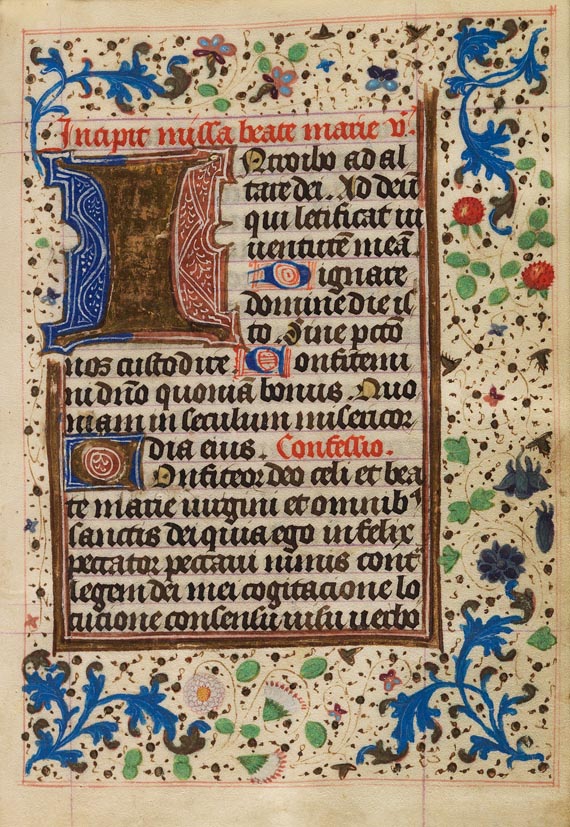 Incipit missa beate marie v̄.
INtroibo ad al
tare dei. Ad deū
qui letificat iu
uentutē meā
Dignare
domine die is
to. Sine pctō
nos custodire. Confitemi
ni dn̄o quoniā bonus. Quo
niam in seculum misericor
dia eius. Confessio.
Confiteor deo celi et bea
te marie uirgini et omnibꝰ
sanctis dei quia ego infelix
peccator peccaui nimis cont᷑
legem dei mei cogitacione lo
cucione consensu uisu uerbo